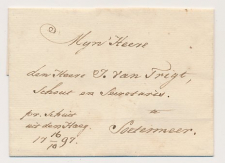 Myn Heere
den Heere J. van Tregt,
Schout en Secretaris.
pr. Schuit
uit den Haag. Soetermeer.
17 16/10 97.